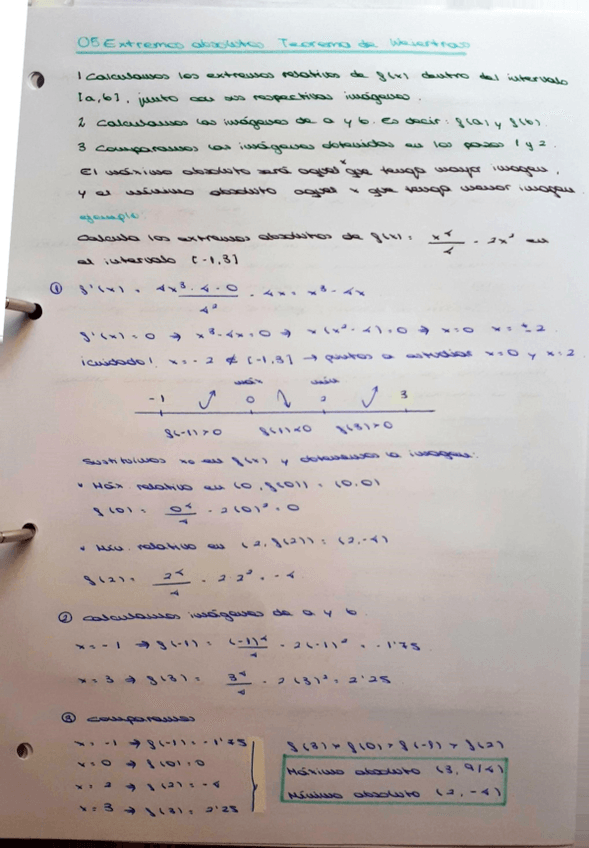 05 Extremos absolutos Teorema de Weierstrass
1 Calculamos los extremos relativos de f(x) dentro del intervalo
[a,b], junto con sus respectivas imágenes.
2 Calculamos las imágenes de a y b. Es decir: f(a) y f(b).
3 Comparamos las imágenes obtenidas en los pasos 1 y 2.
El máximo absoluto será aquel x que tenga mayor imagen,
y el mínimo absoluto aquel x que tenga menor imagen
ejemplo:
Calcula los extremos absolutos de f(x) = x⁴/4 - 2x² en
el intervalo [-1,3]
① f'(x) = 4x³·4-0/4² - 4x = x³-4x
f'(x)=0 → x³-4x=0 → x(x²-4)=0 → x=0 x=±2
¡cuidado!, x=-2 ∉ [-1,3] → puntos a estudiar x=0 y x=2
máx mín
-1 0 2 3
f(-1)>0 f(1)<0 f(3)>0
Sustituimos xo en f(x) y obtenemos la imagen:
• Máx relativo en (0, f(0)) = (0,0)
f(0) = 0⁴/4 - 2(0)² = 0
• Mín. relativo en (2, f(2)) = (2,-4)
f(2) = 2⁴/4 - 2·2² = -4
② Calculamos imágenes de a y b.
x=-1 → f(-1) = (-1)⁴/4 - 2(-1)² = -1'75
x=3 → f(3) = 3⁴/4 - 2(3)² = 2'25
③ Comparamos
x=-1 → f(-1) = -1'75
x=0 → f(0)=0
x=2 → f(2)=-4
x=3 → f(3)=2'25
f(3)>f(0)>f(-1)>f(2)
Máximo absoluto (3, 9/4)
Mínimo absoluto (2,-4)